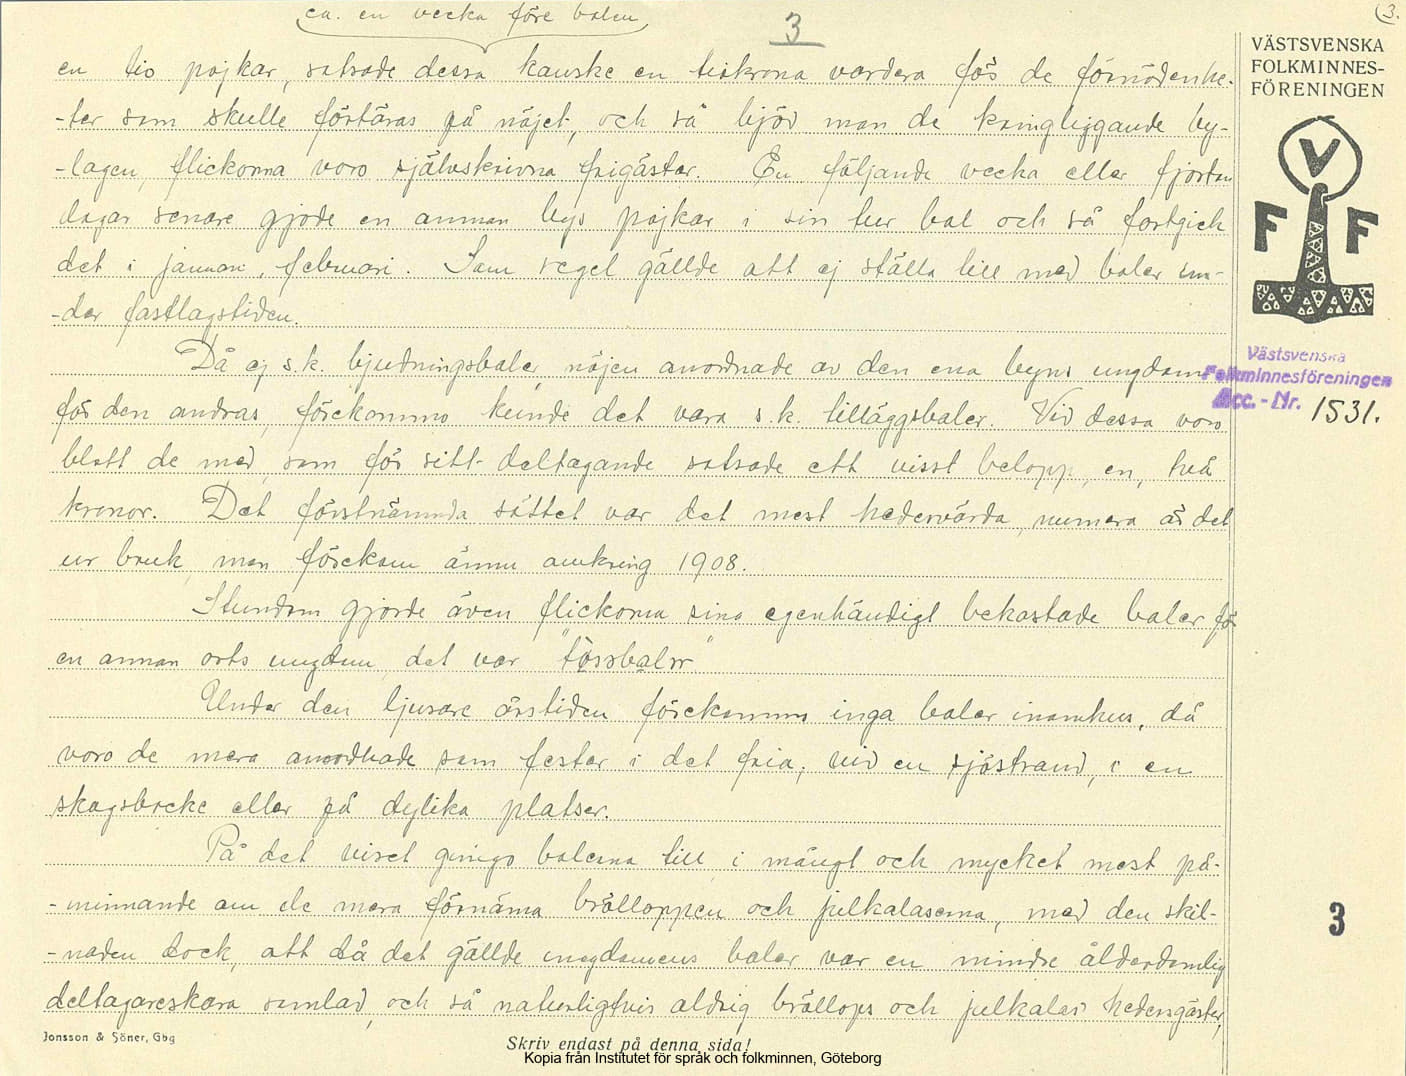 ca. en vecka före balen,
3
(3.
en tio pojkar, satsade dessa kanske en tiokrona vardera för de förnödenhe-
-ter som skulle förtäras på nöjet, och så bjöd man de kringliggande by-
-lagen, flickorna voro självskrivna frigäster. En följande vecka eller fjorton
dagar senare gjode en annan bys pojkar i sin tur bal och så fortgick
det i januari, februari. Som regel gällde att ej ställa till med baler un-
-der fastlagstiden.
Då ej s.k. bjudningsbaler, nöjen anordnade av den ena byns ungdom
för den andras, förekommo kunde det vara s.k. tilläggsbaler. Vid dessa voro
blott de med, som för sitt deltagande satsade ett visst belopp, en, två
kronor. Det förstnämnda sättet var det mest hedervärda, numera är det
ur bruk, men förekom ännu omkring 1908.
Stundom gjorde även flickorna sina egenhändigt bekostade baler för
en annan orts ungdom, det var "tössbaler"
Under den ljusare årstiden förekommo inga baler inomhus, då
voro de mera anordnade som fester i det fria; vid en sjöstrand, i en
skogsbacke eller på dylika platser.
På det viset gingo balerna till i mångt och mycket mest på-
-minnande om de mera förnäma bröllopen och julkalasena, med den skil-
-naden dock, att då det gällde ungdomens baler var en mindre ålderdomlig
deltagareskara samlad, och så naturligtvis aldrig bröllops och julkalas hedersgäster,
VÄSTSVENSKA
FOLKMINNES-
FÖRENINGEN
V
F F
Västsvenska
Folkminnesföreningen
Acc. - Nr. 1531.
3
Jonsson & Söner, Gbg
Skriv endast på denna sida!
Kopia från Institutet för språk och folkminnen, Göteborg